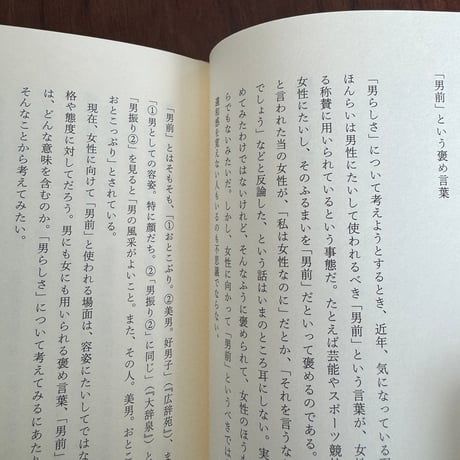 「男前」という褒め言葉
「男らしさ」について考えようとするとき、近年、気になっている
ほんらいは男性にたいして使われるべき「男前」という言葉が、女
る称賛に用いられているという事態だ。たとえば芸能やスポーツ競
女性にたいし、そのふるまいを「男前」だといって褒めるのである。
と言われた当の女性が、「私は女性なのに」だとか、「それを言うな
でしょう」などと反論した、という話はいまのところ耳にしない。実
めてみたわけではないけれど、そんなふうに褒められて、女性のほう
らでもないみたいだ。しかし、女性に向かって「男前」というべきでは
違和感を覚えない人もいるのも不思議でならない。
「男前」とはそもそも、「①おとこぶり。②美男。好男子」(『広辞苑』)、ま
「①男としての容姿。特に顔だち。②「男振り②」に同じ」(『大辞泉』)と
「男振り②」を見ると「男の風采がよいこと。また、その人。美男。おとこ
おとこっぷり」とされている。
現在、女性に向けて「男前」と使われる場面は、容姿にたいしてではな
格や態度に対してだろう。男にも女にも用いられる褒め言葉、「男前」
は、どんな意味を含むのか。「男らしさ」について考えてみるにあたり
そんなことから考えてみたい。